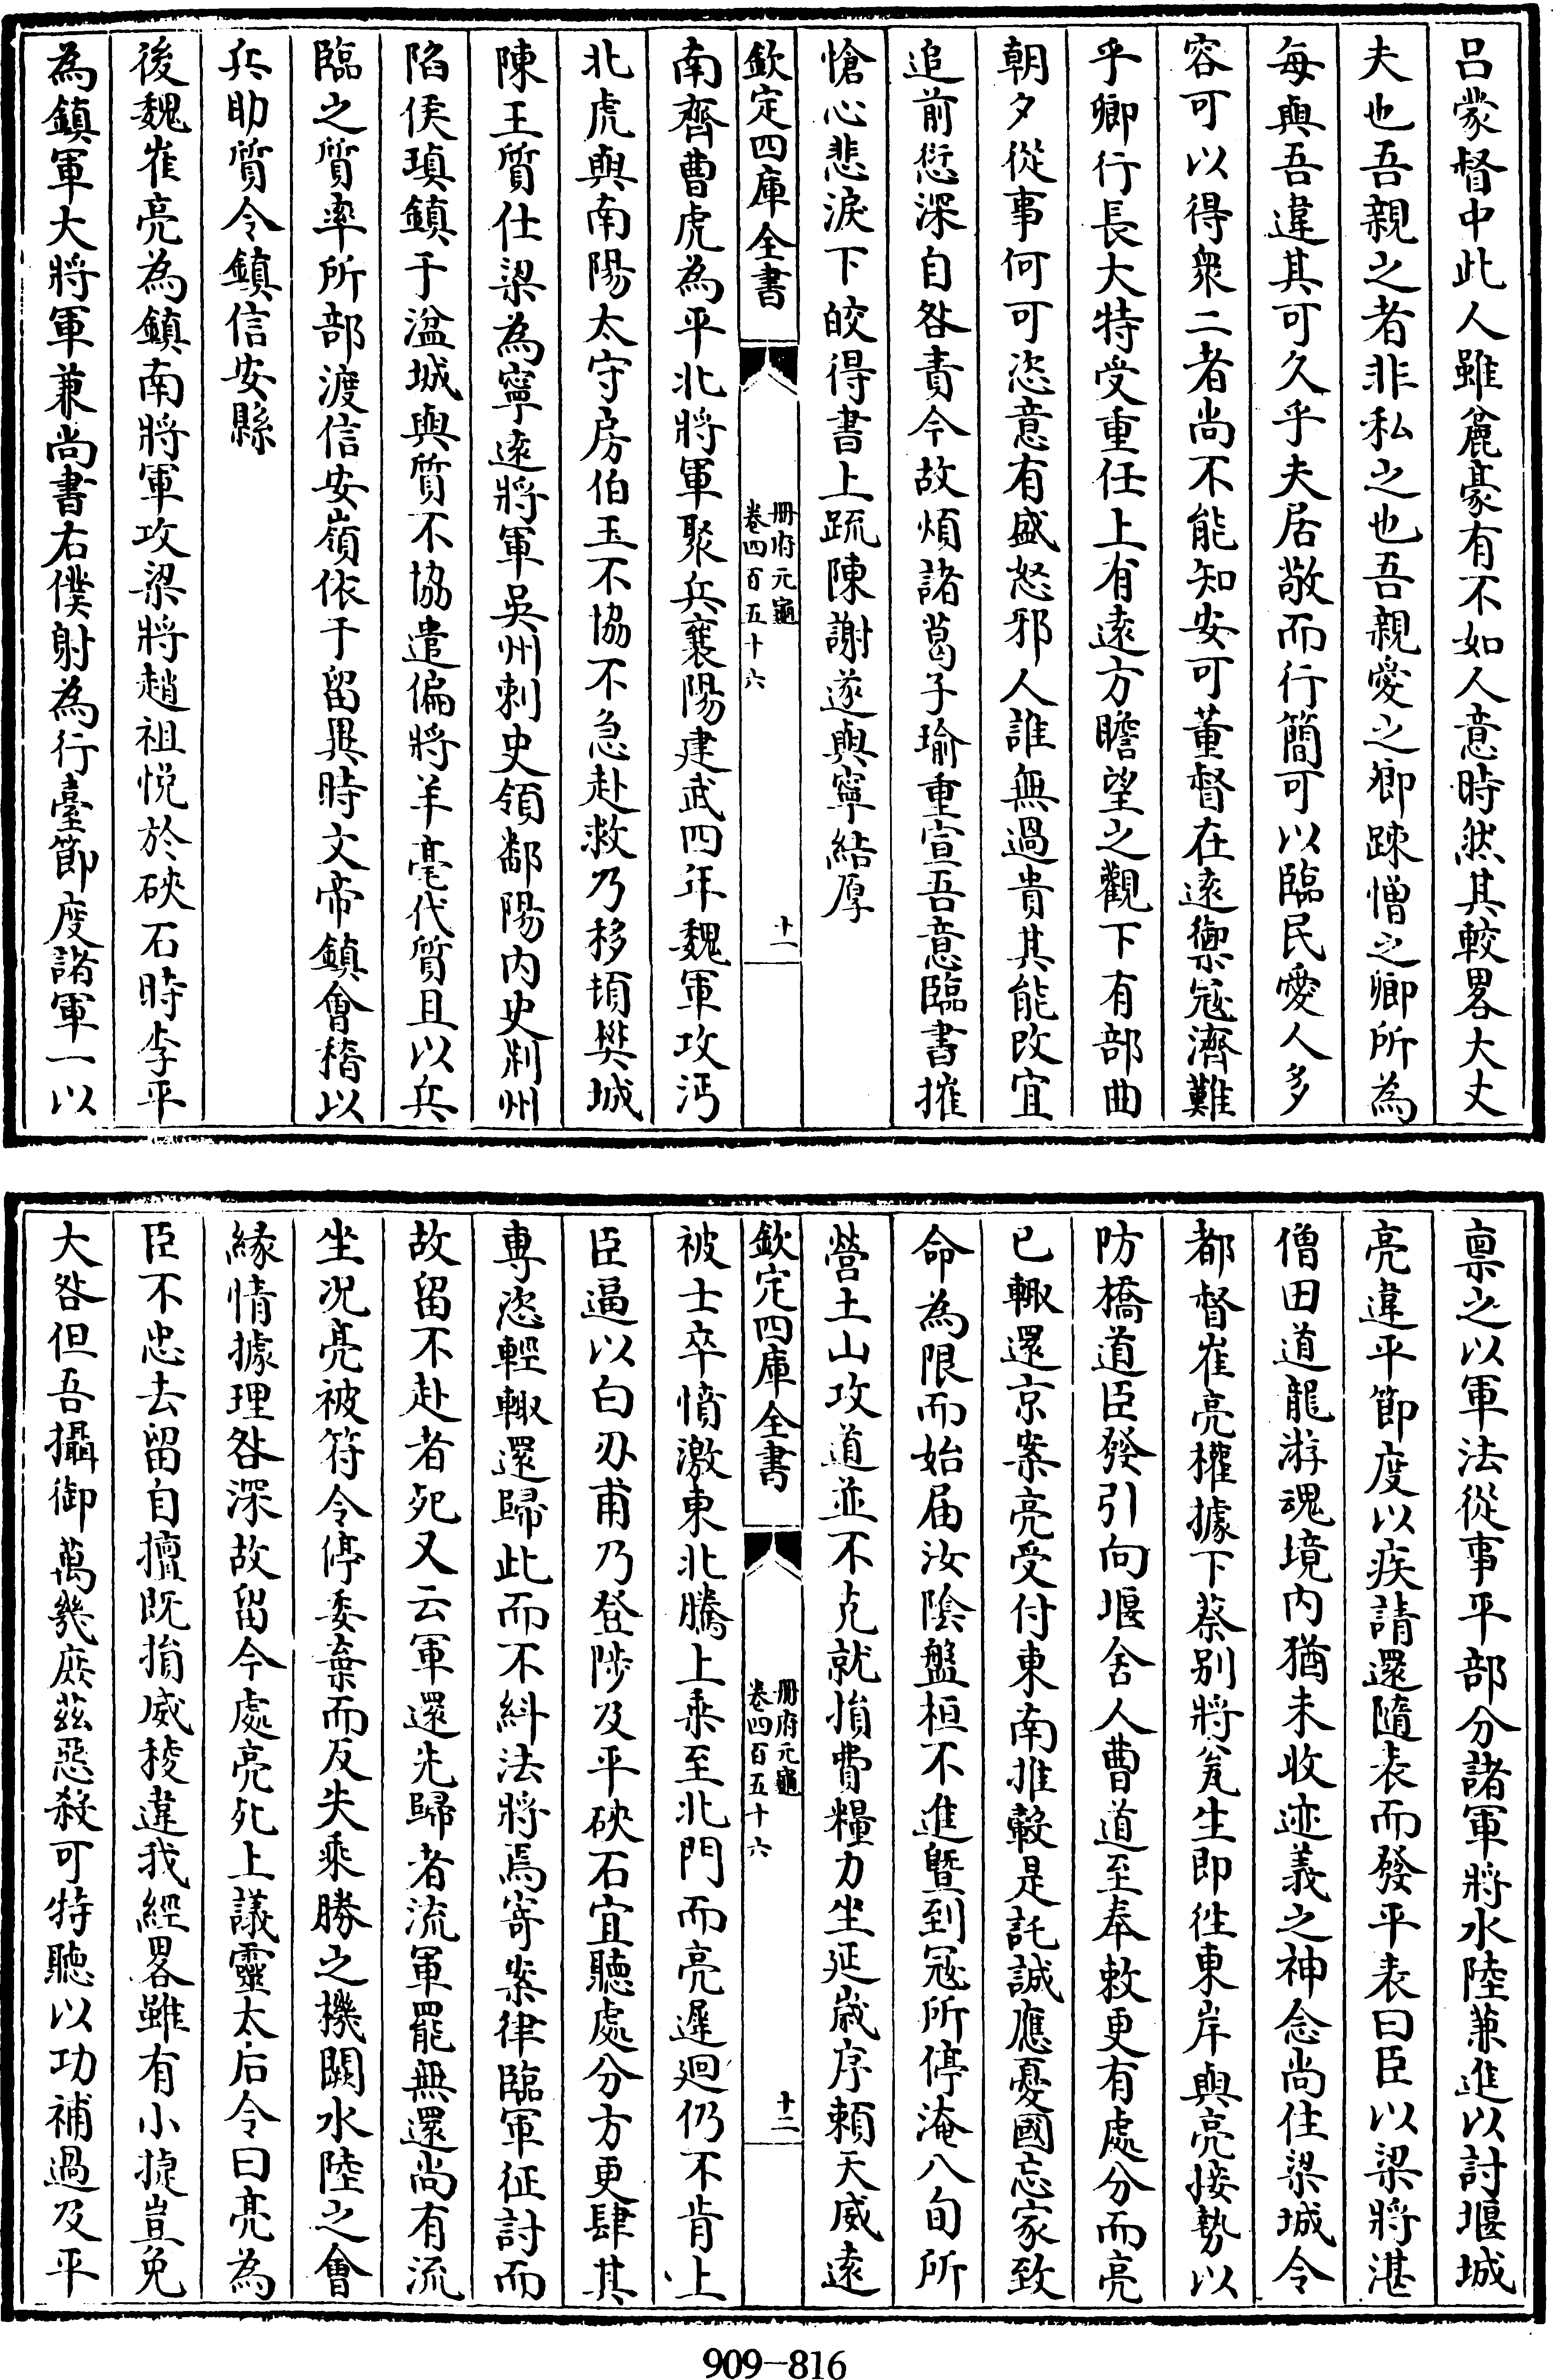 呂蒙督中此人雖麄豪有不如人意時然其較畧大丈
夫也吾親之者非私之也吾親愛之卿踈憎之卿所為
每與吾違其可久乎夫居敬而行簡可以臨民愛人多
容可以得衆二者尚不能知安可董督在逺禦冦濟難
乎卿行長大特受重任上有逺方瞻望之觀下有部曲
朝夕從事何可恣意有盛怒邪人誰無過貴其能改宜
追前愆深自咎責今故煩諸葛子瑜重宣吾意臨書摧
愴心悲淚下皎得書上疏陳謝遂與寧結厚
欽定四庫全書
冊府元龜
卷四百五十六
十一
南齊曹虎為平北將軍聚兵襄陽建武四年魏軍攻沔
北虎與南陽太守房伯玉不協不急赴救乃移頓樊城
陳王質仕梁為寧逺將軍吳州刺史領鄱陽內史荆州
陷侯瑱鎮于湓城與質不協遣偏將羊亮代質且以兵
臨之質率所部渡信安嶺依于留異時文帝鎮會稽以
兵助質令鎮信安縣
後魏崔亮為鎮南將軍攻梁將趙祖悦於硤石時李平
為鎮軍大將軍兼尚書右僕射為行臺節度諸軍一以
禀之以軍法從事平部分諸軍將水陸兼進以討堰城
亮違平節度以疾請還隨表而發平表曰臣以梁將湛
僧田道龍游魂境内猶未收迹義之神念尚住梁城令
都督崔亮權據下蔡别將瓮生即徃東岸與亮接勢以
防橋道臣發引向堰舍人曹道至奉敕更有處分而亮
已輙還京案亮受付東南推轂是託誠應憂國忘家致
命為限而始届汝隂盤桓不進暨到冦所停淹八旬所
營土山攻道並不克就損費糧力坐延歲序頼天威逺
欽定四庫全書
冊府元龜
卷四百五十六
十二
被士卒憤激東北騰上乘至北門而亮遲廻仍不肯上
臣逼以白刃甫乃登陟及平硤石宜聽處分方更肆其
專恣輕輙還歸此而不糾法將焉寄案律臨軍征討而
故留不赴者死又云軍還先歸者流軍罷無還尚有流
坐况亮被符令停委棄而反失乘勝之機闕水陸之會
緣情據理咎深故留今處亮死上議靈太后令曰亮為
臣不忠去留自擅既損威稜違我經畧雖有小捷豈免
大咎但吾攝御萬幾庶茲惡殺可特聽以功補過及平
909-816